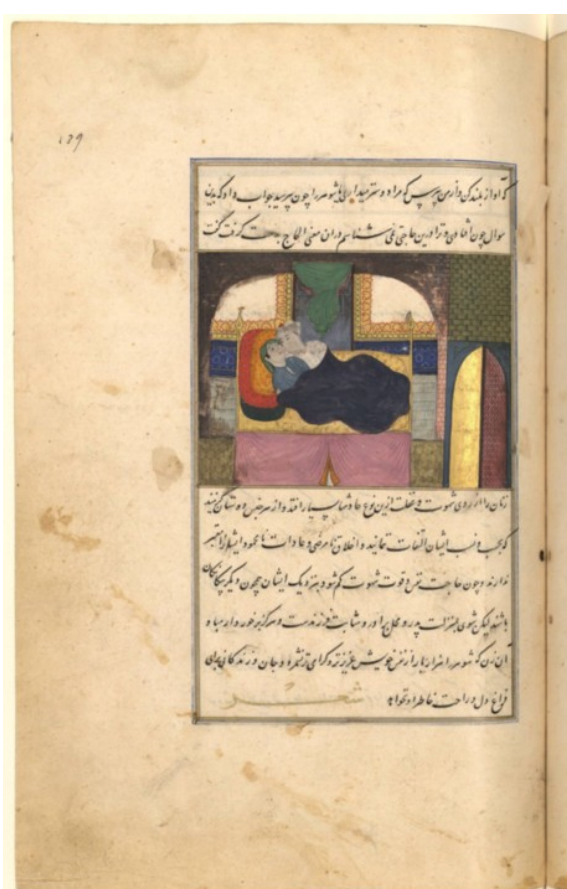 ۱۲۹
که آواز بلند کن و از من بپرس که مرا دوستر میداری یا شوهر را چون پرسید جواب داد که بدین
سوال چون افتادی و ترا درین حاجتی نمی شناسم در آن معنی الحاح بر دست گرفت گفت
زنان را از روی شهوت و غفلت ازین نوع حادثها بسیار افتد و از هر جنس دوستان گزینند
که بحسب و نسب ایشان التفات ننمایند و اخلاق نامرضی و عادات نامحمود ایشانرا معتبر
ندارند و چون حاجت نفس و قوت شهوت کم شود بنزدیک ایشان همچون دیگر بیگانگان
باشند لیکن شوی بمنزلت پدر و محل برادر و مثابت فرزندست و هرگز برخوردار مباد
آن زن که شوهر را هزار بار از نفس خویش عزیزتر و گرامی تر نشمرد و جان و زندگانی برای
فراغ دل و راحت خاطر او نخواهد
شعر